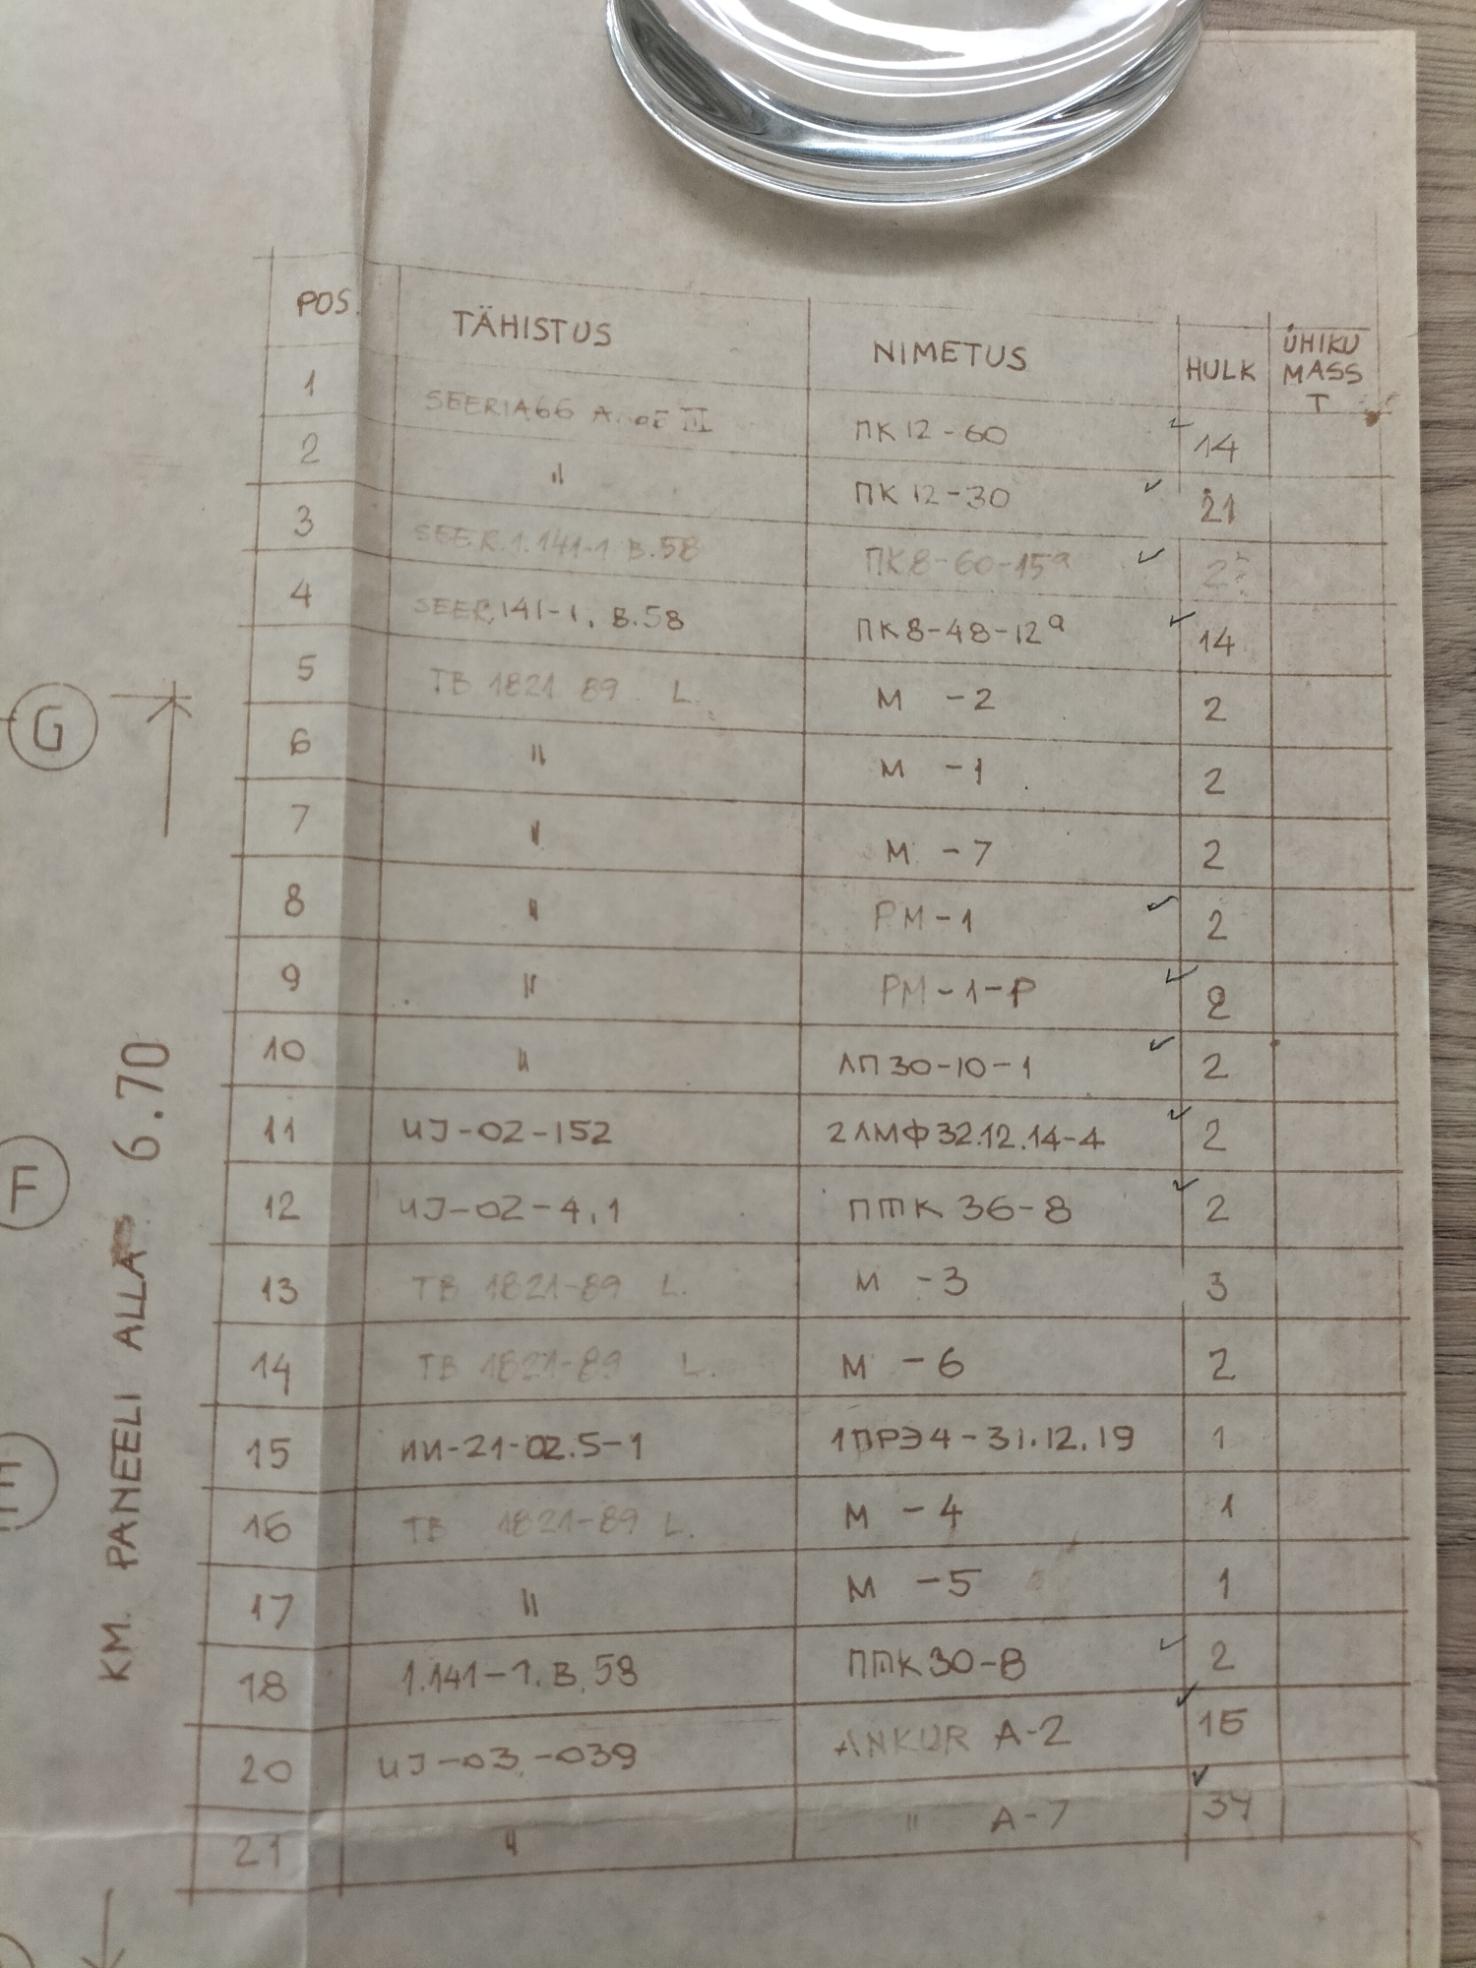 POS. TÄHISTUS NIMETUS HULK ÜHIKU MASS T
1 SEERIA66 A. III ПК 12-60 14
2 " ПК 12-30 21
3 SEER.1.141-1 B.58 ПК8-60-15ª
4 SEER.141-1. B.58 ПК8-48-12ª 14
5 TB 1821 89 L. M -2 2
6 " M -1 2
7 " M -7 2
8 " PM-1 2
9 " PM-1-P 2
10 " ЛП30-10-1 2
11 ИJ-02-152 2ЛМФ32.12.14-4 2
12 ИJ-02-4.1 ПТК 36-8 2
13 TB 1821-89 L. M -3 3
14 TB 1821-89 L. M -6 2
15 ИИ-21-02.5-1 1ПРЭ4-31.12.19 1
16 TB 1821-89 L. M -4 1
17 " M -5 1
18 1.141-1.B.58 ПТК30-8 2
20 ИJ-03-039 ANKUR A-2 15
21 " " A-7 34
G
F
KM. PANEELI ALLA 6.70